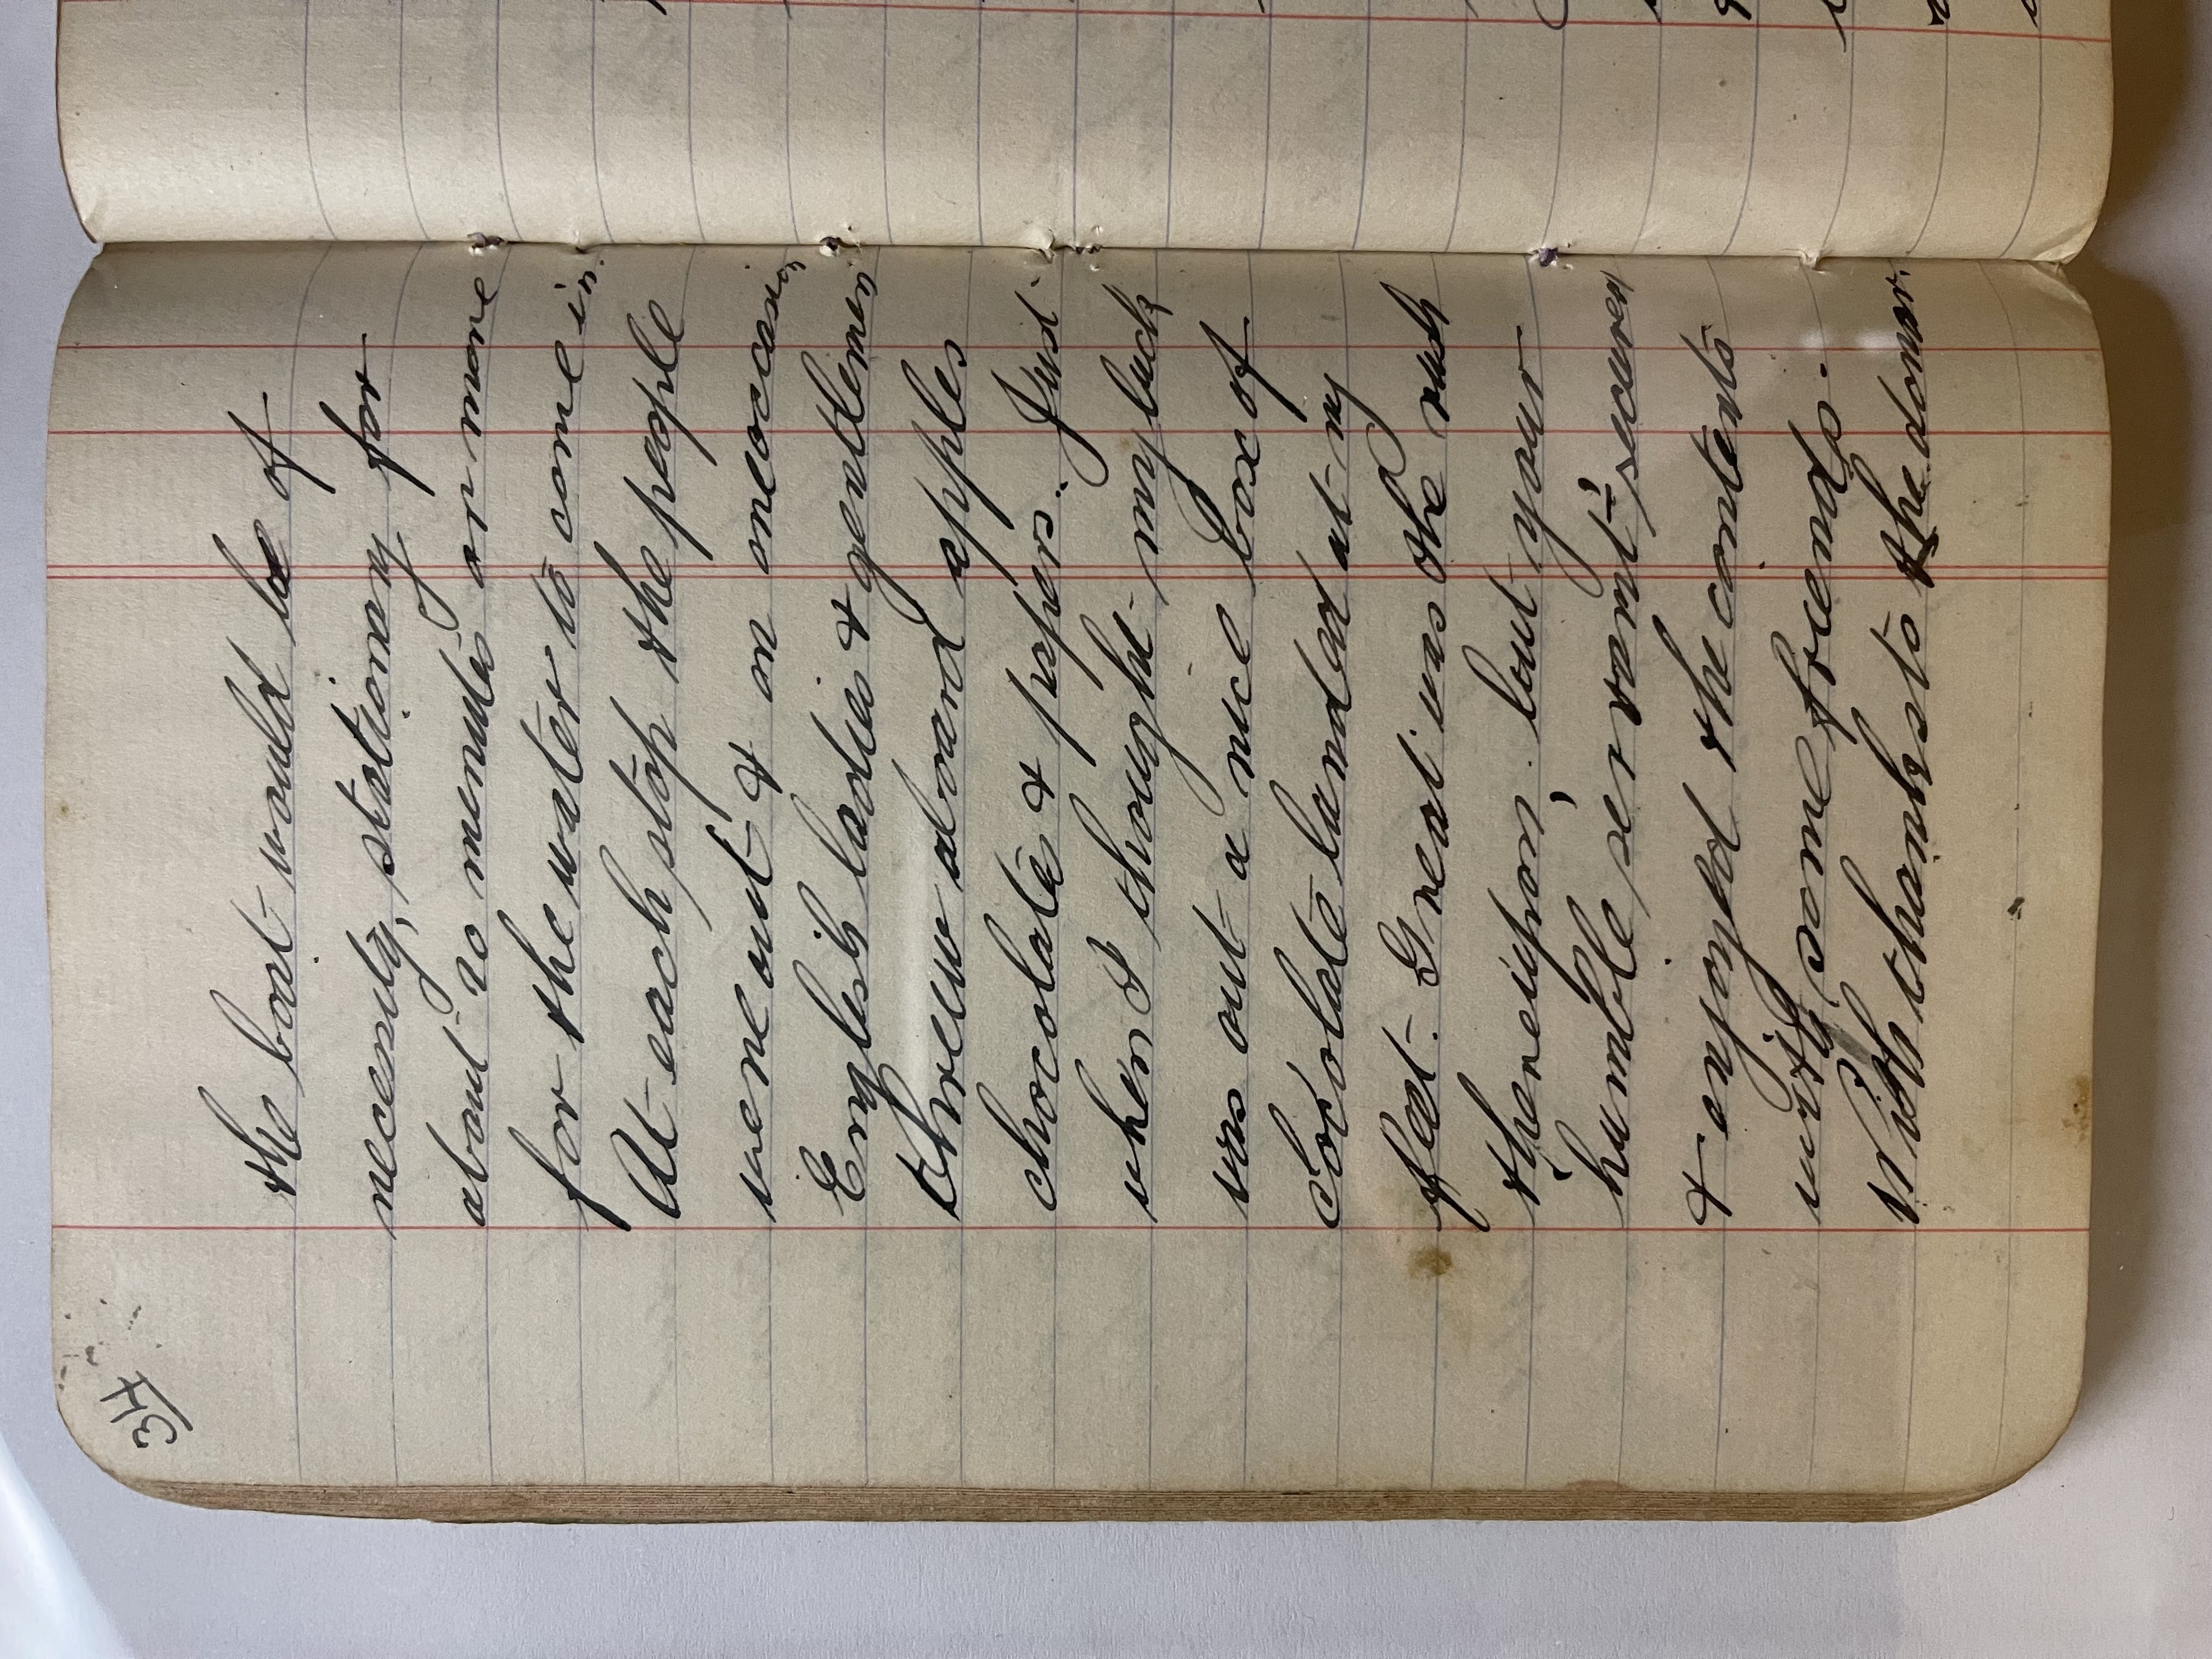 34
the boat would be of
necessity, stationary for
about 20 minutes or more
for the water to come in.
At each stop the people
were out & on one occasion
English ladies & gentlemen
threw aboard apples
chocolates & papers. Just
when I thought my luck
was out a nice box of
Cocolate landed at my
feet. Great was the rush
thereupon, but your
"humble servant" secured
& enjoyed the contents
with some friends.
With thanks to the donor.